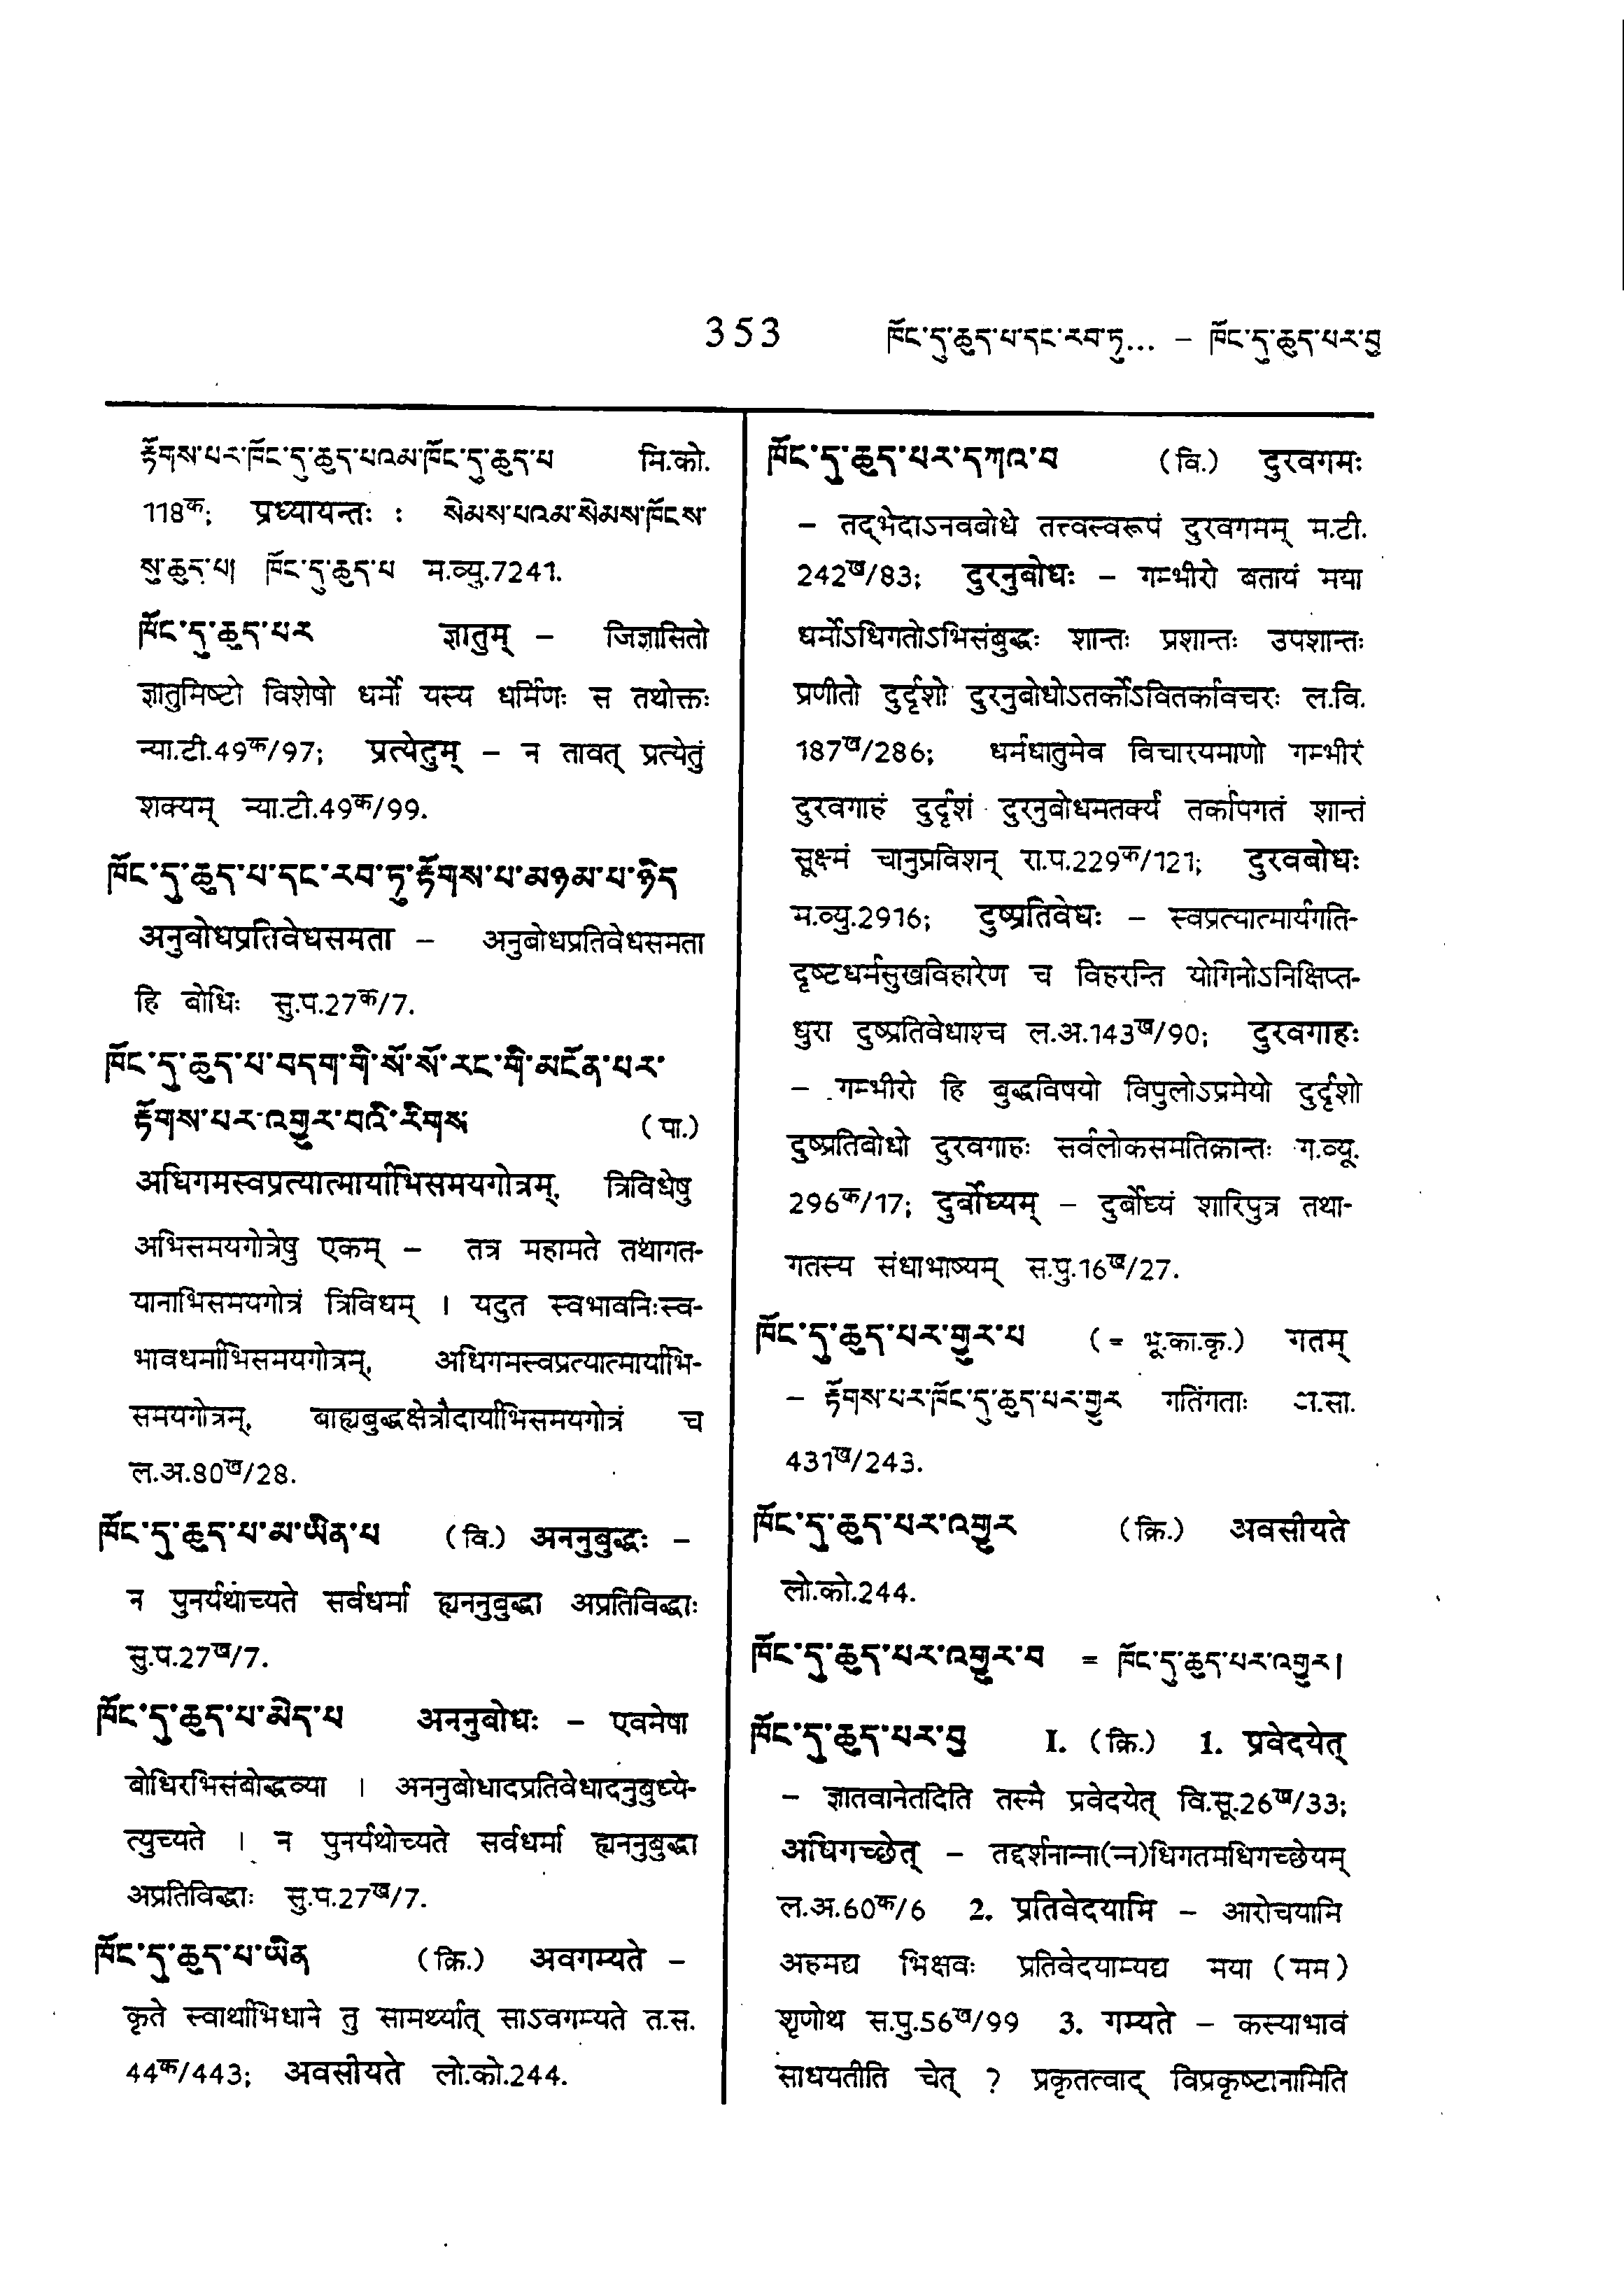 353 ཁོང་དུ་ཆུད་པ་དང་རབ་ཏུ... – ཁོང་དུ་ཆུད་པར་བུ
རྟོགས་པར་ཁོང་དུ་ཆུད་པའམ་ཁོང་དུ་ཆུད་པ མि.को.
118क; प्रध्यायन्तः : སེམས་པའམ་སེམས་ཁོངས་
སུ་ཆུད་པ། ཁོང་དུ་ཆུད་པ म.व्यु.7241.
ཁོང་དུ་ཆུད་པར ज्ञातुम् – जिज्ञासितो
ज्ञातुमिष्टो विशेषो धर्मो यस्य धर्मिणः स तथोक्तः
न्या.टी.49क/97; प्रत्येतुम् – न तावत् प्रत्येतुं
शक्यम् न्या.टी.49क/99.
ཁོང་དུ་ཆུད་པ་དང་རབ་ཏུ་རྟོགས་པ་མཉམ་པ་ཉིད
अनुबोधप्रतिवेधसमता – अनुबोधप्रतिवेधसमता
हि बोधिः सु.प.27क/7.
ཁོང་དུ་ཆུད་པ་བདག་གི་སོ་སོ་རང་གི་མངོན་པར་
རྟོགས་པར་འགྱུར་བའི་རིགས (पा.)
अधिगमस्वप्रत्यात्मार्याभिसमयगोत्रम्, त्रिविधेषु
अभिसमयगोत्रेषु एकम् – तत्र महामते तथागत-
यानाभिसमयगोत्रं त्रिविधम् । यदुत स्वभावनिःस्व-
भावधर्माभिसमयगोत्रम्, अधिगमस्वप्रत्यात्मार्याभि-
समयगोत्रम्, बाह्यबुद्धक्षेत्रौदार्याभिसमयगोत्रं च
ल.अ.80ख/28.
ཁོང་དུ་ཆུད་པ་མ་ཡིན་པ (वि.) अननुबुद्धः –
न पुनर्यथोच्यते सर्वधर्मा ह्यननुबुद्धा अप्रतिविद्धाः
सु.प.27ख/7.
ཁོང་དུ་ཆུད་པ་མེད་པ अननुबोधः – एवमेषा
बोधिरभिसंबोद्धव्या । अननुबोधादप्रतिवेधादनुबुध्ये-
त्युच्यते । न पुनर्यथोच्यते सर्वधर्मा ह्यननुबुद्धा
अप्रतिविद्धाः सु.प.27ख/7.
ཁོང་དུ་ཆུད་པ་ཡིན (क्रि.) अवगम्यते –
कृते स्वार्थाभिधाने तु सामर्थ्यात् साऽवगम्यते त.स.
44क/443; अवसीयते लो.को.244.
ཁོང་དུ་ཆུད་པར་དཀའ་བ (वि.) दुरवगमः
– तद्भेदाऽनवबोधे तत्त्वस्वरूपं दुरवगमम् म.टी.
242ख/83; दुरनुबोधः – गम्भीरो बतायं मया
धर्मोऽधिगतोऽभिसंबुद्धः शान्तः प्रशान्तः उपशान्तः
प्रणीतो दुर्दृशो दुरनुबोधोऽतर्कोऽवितर्कावचरः ल.वि.
187ख/286; धर्मधातुमेव विचारयमाणो गम्भीरं
दुरवगाहं दुर्दृशं दुरनुबोधमतर्क्यं तर्कापगतं शान्तं
सूक्ष्मं चानुप्रविशन् रा.प.229क/121; दुरवबोधः
म.व्यु.2916; दुष्प्रतिवेधः – स्वप्रत्यात्मार्यगति-
दृष्टधर्मसुखविहारेण च विहरन्ति योगिनोऽनिक्षिप्त-
धुरा दुष्प्रतिवेधाश्च ल.अ.143ख/90; दुरवगाहः
– गम्भीरो हि बुद्धविषयो विपुलोऽप्रमेयो दुर्दृशो
दुष्प्रतिबोधो दुरवगाहः सर्वलोकसमतिक्रान्तः ग.व्यू.
296क/17; दुर्बोध्यम् – दुर्बोध्यं शारिपुत्र तथा-
गतस्य संधाभाष्यम् स.पु.16ख/27.
ཁོང་དུ་ཆུད་པར་གྱུར་པ (= भू.का.कृ.) गतम्
– རྟོགས་པར་ཁོང་དུ་ཆུད་པར་གྱུར गतिंगताः .सा.
431ख/243.
ཁོང་དུ་ཆུད་པར་འགྱུར (क्रि.) अवसीयते
लो.को.244.
ཁོང་དུ་ཆུད་པར་འགྱུར་བ = ཁོང་དུ་ཆུད་པར་འགྱུར།
ཁོང་དུ་ཆུད་པར་བུ I. (क्रि.) 1. प्रवेदयेत्
– ज्ञातवानेतदिति तस्मै प्रवेदयेत् वि.सू.26ख/33;
अधिगच्छेत् – तद्दर्शनान्ना(न्न)धिगतमधिगच्छेयम्
ल.अ.60क/6 2. प्रतिवेदयामि – आरोचयामि
अहमद्य भिक्षवः प्रतिवेदयाम्यद्य मया (मम)
शृणोथ स.पु.56ख/99 3. गम्यते – कस्याभावं
साधयतीति चेत् ? प्रकृतत्वाद् विप्रकृष्टानामिति